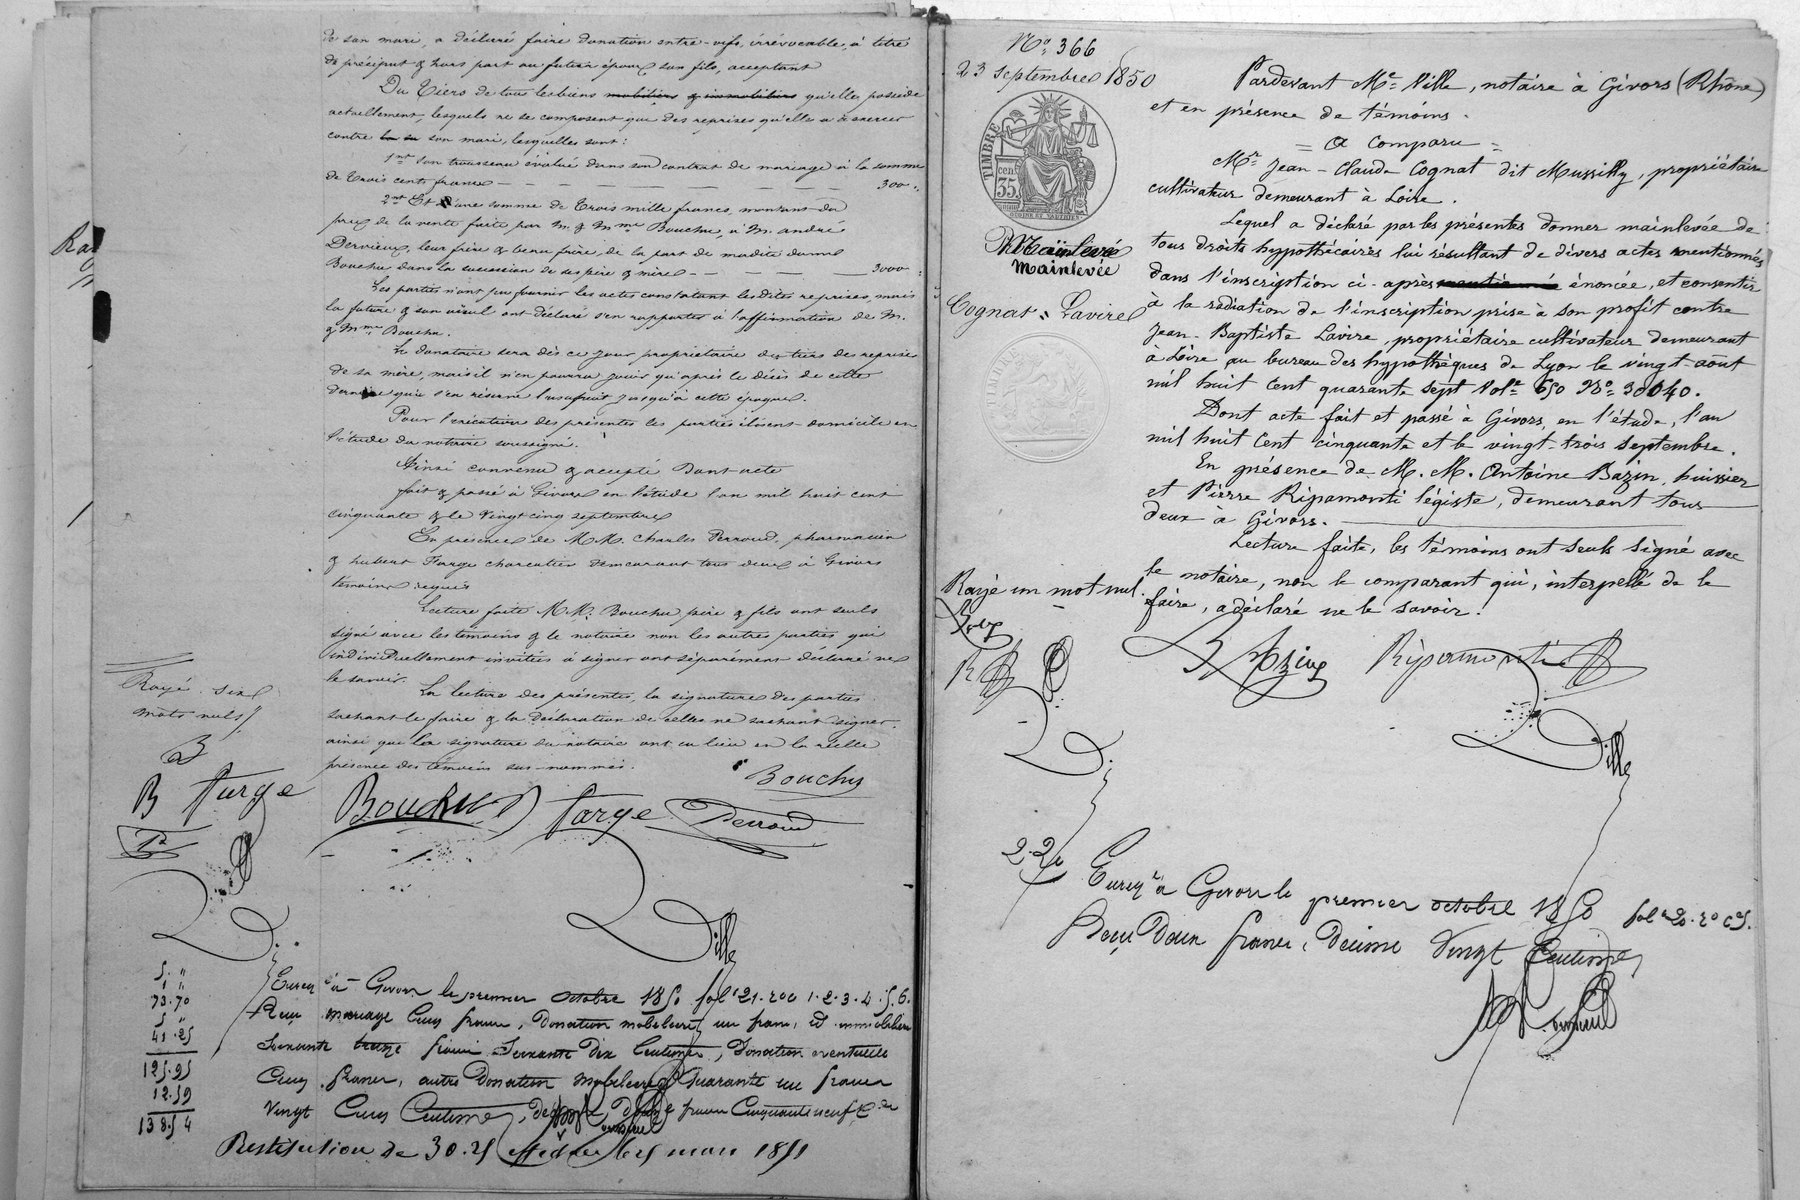 de son mari, a déclaré faire donation entre-vifs, irrévocable, à titre
de préciput & hors part au futur époux, son fils, acceptant
Du Tiers de tous les biens mobiliers & immobiliers qu'elle possède
actuellement, lesquels ne se composent que des reprises qu'elle a à exercer
contre son mari, lesquelles sont:
1ent Son trousseau évalué dans son contrat de mariage à la somme
de Trois cents francs — — — — — — 300 "
2ent Et d'une somme de Trois mille francs, montant du
prix de la vente faite par M. & Mme Bouchu, à M. André
Dervieux, leur frère & beau frère, de la part de madite dame
Bouchu dans la succession de ses père & mère — — — 3000 "
Les parties n'ont pu fournir les actes constatant lesdites reprises, mais
la future & son aïeul ont déclaré s'en rapporter à l'affirmation de M.
& Mme Bouchu.
Le donataire sera dès ce jour propriétaire du tiers des reprises
de sa mère, mais il n'en pourra jouir qu'après le décès de cette
dernière qui s'en réserve l'usufruit jusqu'à cette époque.
Pour l'exécution des présentes les parties élisent domicile en
l'étude du notaire soussigné.
Ainsi convenu & accepté Dont acte
fait & passé à Givors en l'étude l'an mil huit cent
cinquante & le vingt cinq septembre
En présence de MM. Charles Perroud, pharmacien
& hubert Farge charcutier demeurant tous deux à Givors
témoins requis
Lecture faite MM. Bouchu père & fils ont seuls
signé avec les témoins & le notaire non les autres parties qui
individuellement invitées à signer ont séparément déclaré ne
le savoir.
La lecture des présentes, la signature des parties
sachant le faire & la déclaration de celles ne sachant signer
ainsi que la signature du notaire ont eu lieu en la réelle
présence des témoins sus-nommés.
Rayé six
mots nuls
B
B farge
P
Bouchu
Bouchu farge Perroud
Ville
5. "
1 "
73.70
5 "
41.25
125.95
12.59
138.54
Enreg. à Givors le premier octobre 1850 fol 21. Roc 1.2.3.4.5.6.
Reçu mariage Cinq francs, Donation mobilière un franc, id immobilière
Soixante treize francs Soixante Dix Centimes, Donation eventuelle
Cinq francs, autre Donation Mobiliere Quarante un francs
Vingt Cinq Centimes, décime Douze francs Cinquante neuf C
Restitution de 30.25 25 mars 1851
Nº 366
23 septembre 1850
TIMBRE
cent 35
Mainlevée
Mainlevée
Cognat à Lavire
Pardevant Me Ville, notaire à Givors (Rhône)
et en présence de témoins.
= A Comparu =
Mr Jean-Claude Cognat dit Mussilly, propriétaire
cultivateur demeurant à Loire.
Lequel a déclaré par les présentes donner mainlevée de
tous droits hypothécaires lui résultant de divers actes mentionnés
dans l'inscription ci-après énoncée, et consentir
à la radiation de l'inscription prise à son profit contre
Jean-Baptiste Lavire, propriétaire cultivateur demeurant
à Loire, au bureau des hypothèques de Lyon le vingt août
mil huit cent quarante sept Vole 650 No 30040.
Dont acte fait et passé à Givors, en l'étude, l'an
mil huit cent cinquante et le vingt-trois septembre.
En présence de M.M. Antoine Bazin, huissier
et Pierre Ripamonti légiste, demeurant tous
deux à Givors.
Lecture faite, les témoins ont seuls signé avec
le notaire, non le comparant qui, interpellé de le
faire, a déclaré ne le savoir.
Rayé un mot nul.
Bazin Ripamonti
Ville
2.20
Enreg. à Givors le premier octobre 1850 fol 20. Ro C 5.
Reçu Deux francs, Decime Vingt Centimes